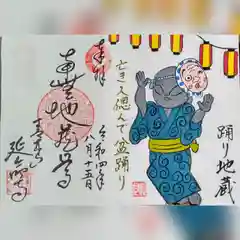 奉拝
令和四年
八月十五日
地蔵尊
延命寺
踊り地蔵
亡き人偲んで盆踊り